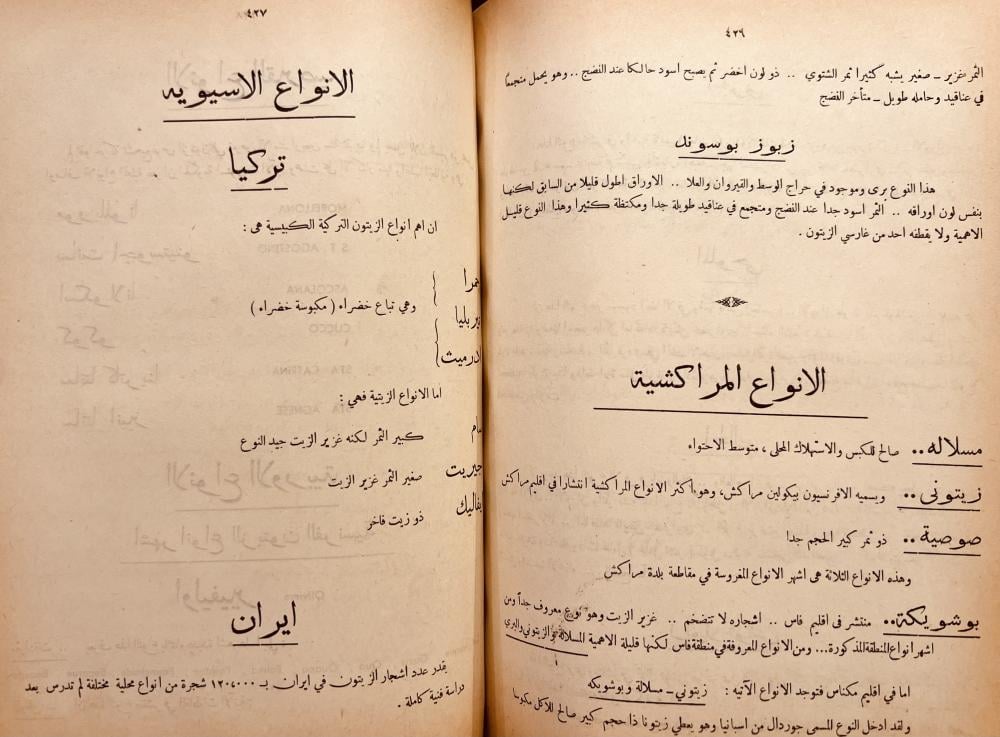 ٤٢٦
الثمر غزير ـ صغير يشبه كثيرا ثمر الشتوي .. ذو لون اخضر ثم يصبح اسود حالكا عند النضج .. وهو يحمل متجمعا
في عناقيد وحامله طويل ـ متأخر النضج
زبوز بوسوند
هذا النوع بري وموجود في حراج الوسط والقيروان والعلا .. الاوراق اطول قليلا من السابق لكنها
بنفس لون اوراقه .. الثمر اسود جدا عند النضج ومتجمع في عناقيد طويلة جدا ومكتظة كثيرا وهذا النوع قليل
الاهمية ولا يقطفه احد من غارسي الزيتون .
الانواع المراكشية
مسلاله .. صالح للكبس والاستهلاك المحلى ، متوسط الاحتواء
زيتوني .. ويسميه الافرنسيون بيكولين مراكش، وهو اكثر الانواع المراكشية انتشارا في اقليم مراكش
صوصية .. ذو ثمر كبير الحجم جدا
وهذه الانواع الثلاثة هى اشهر الانواع المغروسة في مقاطعة بلدة مراكش
بوشويكة .. منتشر فى اقليم فاس .. اشجاره لا تتضخم .. غزير الزيت وهو نوع معروف جداً ومن
اشهر انواع المنطقة المذكورة ... ومن الانواع المعروفة في منطقة فاس لكنها قليلة الاهمية المسلالة والزيتوني والبري
اما في اقليم مكناس فتوجد الانواع الآتيه : زيتوني ـ مسلالة وبوشويكه
ولقد ادخل النوع المسمى جوردال من اسبانيا وهو يعطي زيتونا ذا حجم كبير صالح للاكل مكبوسا
٤٢٧
الانواع الاسيويه
تركيا
ان اهم انواع الزيتون التركية الكبيسية هى :
وهي تباع خضراء ( مكبوسة خضراء )
اما الانواع الزيتية فهي :
كبير الثمر لكنه غزير الزيت جيد النوع
صغير الثمر غزير الزيت
ذو زيت فاخر
ايران
يقدر عدد اشجار الزيتون في ايران بـ ١٢٠،٠٠٠ شجرة من انواع محلية مختلفة لم تدرس بعد
دراسة فنية كاملة .